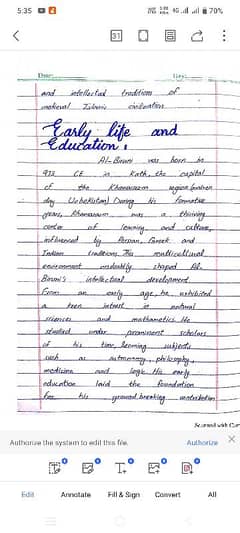 5:35
4G 70%
31
Date:
and intellectual traditions of
medieval Islamic civilization
Early life and
Education:
Al-Biruni was born in
973 CE in Kath, the capital
of the Khwarazm region (modern
day Uzbekistan) During his formative
years, Khwarazm was a thriving
center of learning and culture,
influenced by Persian, Greek and
Indian traditions. This multicultural
environment undoubtedly shaped Al-
Biruni's intellectual development
From an early age, he exhibited
a keen interest in natural
sciences and mathematics. He
studied under prominent scholars
of his time, learning subjects
such as astronomy, philosophy,
medicine and logic. His early
education laid the foundation
for his ground breaking contribution
Scanned with Cam
Authorize the system to edit this file.
Authorize
Edit Annotate Fill & Sign Convert All